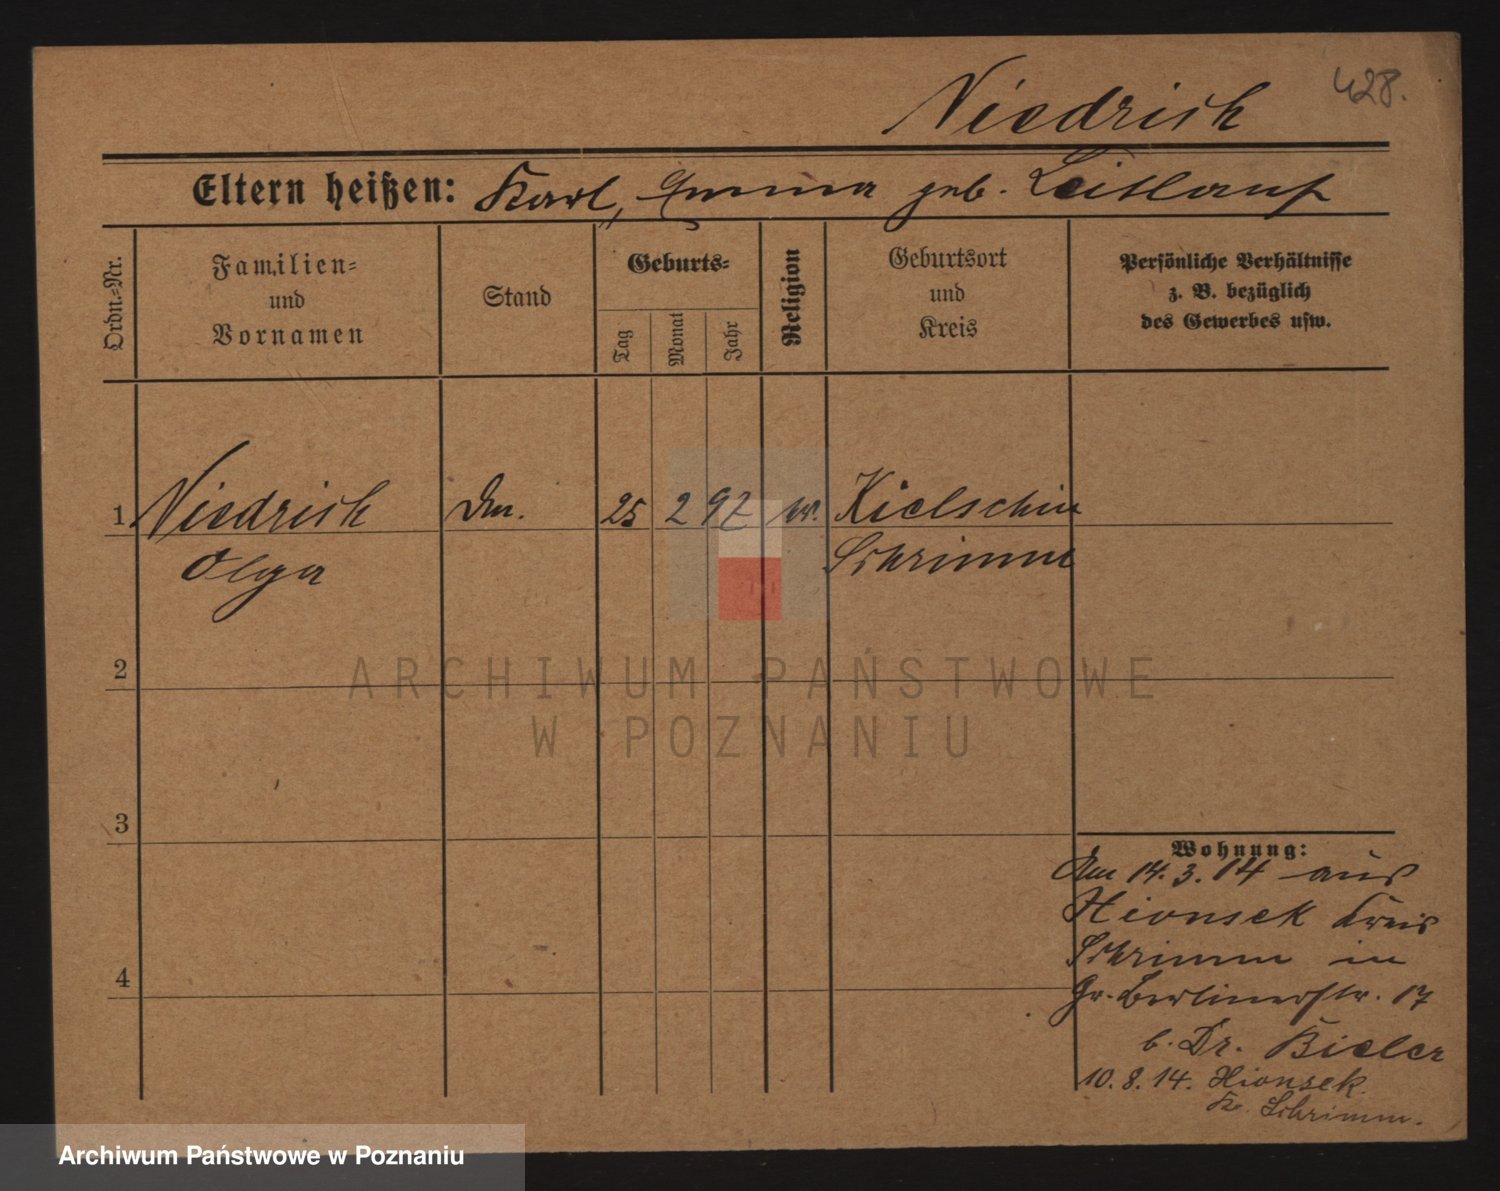 428.
Niedrich
Eltern heißen: Karl, Emma geb. Leitlauf
Ordn.-Nr.
Familien-
und
Vornamen
Stand
Geburts-
Tag
Monat
Jahr
Religion
Geburtsort
und
Kreis
Persönliche Verhältnisse
z. B. bezüglich
des Gewerbes usw.
1 Niedrich 25 2 92 Kielschin
Olga Schrimm
2
ARCHIWUM PAŃSTWOWE
W POZNANIU
3
Wohnung:
Am 14.3.14 aus
Hionsek Kreis
Schrimm in
Gr. Berlinerstr. 17
b. Dr. Bieler
4
10.8.14. Hionsek
Kr. Schrimm.
Archiwum Państwowe w Poznaniu